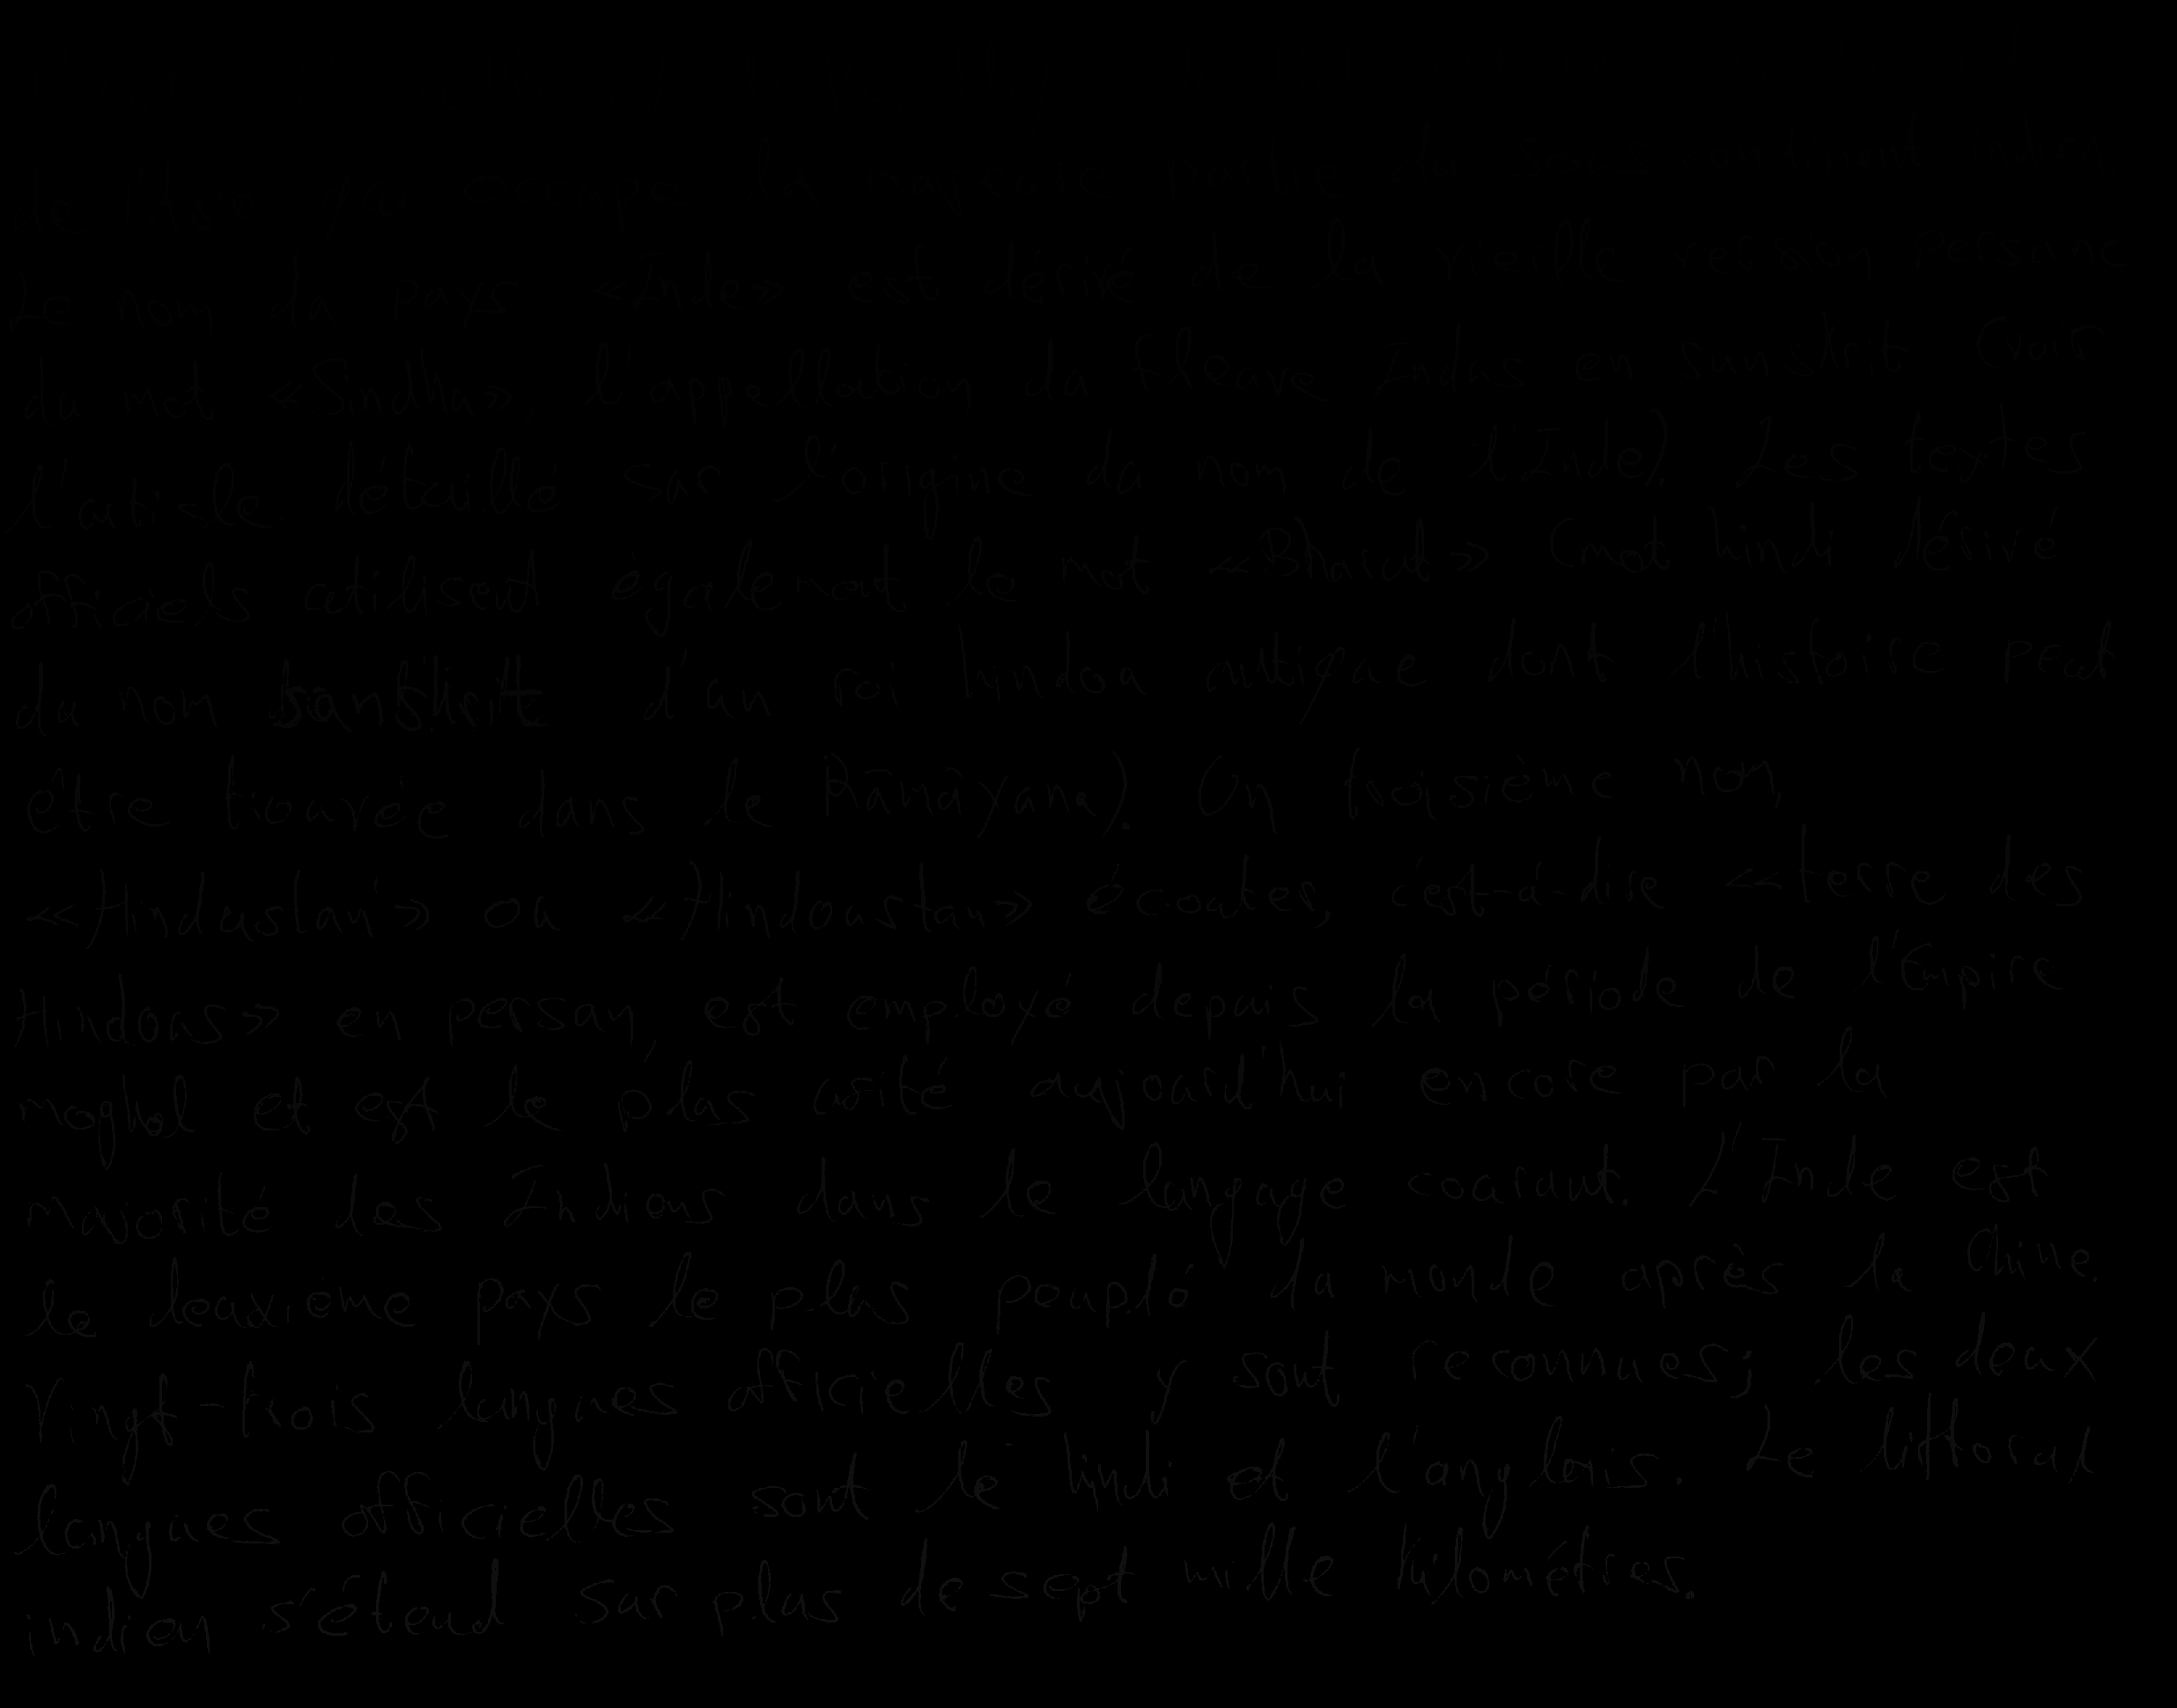 de l'Asie qui occupe la majeure partie du sous-continent indien.
Le nom du pays «Inde» est dérivé de la vieille version persane
du mot «Sindhu», l'appellation du fleuve Indus en sanskrit (voir
l'article détaillé sur l'origine du nom de l'Inde). Les textes
officiels utilisent également le mot «Bharat» (mot hindi dérivé
du nom sanskrit d'un roi hindou antique dont l'histoire peut
être trouvée dans le Rāmāyana). Un troisième nom,
«Hindustan» ou «Hindoustan» écouter, c'est-à-dire «terre des
Hindous» en persan, est employé depuis la période de l'Empire
moghol et est le plus usité aujourd'hui encore par la
majorité des Indiens dans le langage courant. L'Inde est
le deuxième pays le plus peuplé du monde après la Chine.
Vingt-trois langues officielles y sont reconnues; les deux
langues officielles sont le hindi et l'anglais. Le littoral
indien s'étend sur plus de sept mille kilomètres.